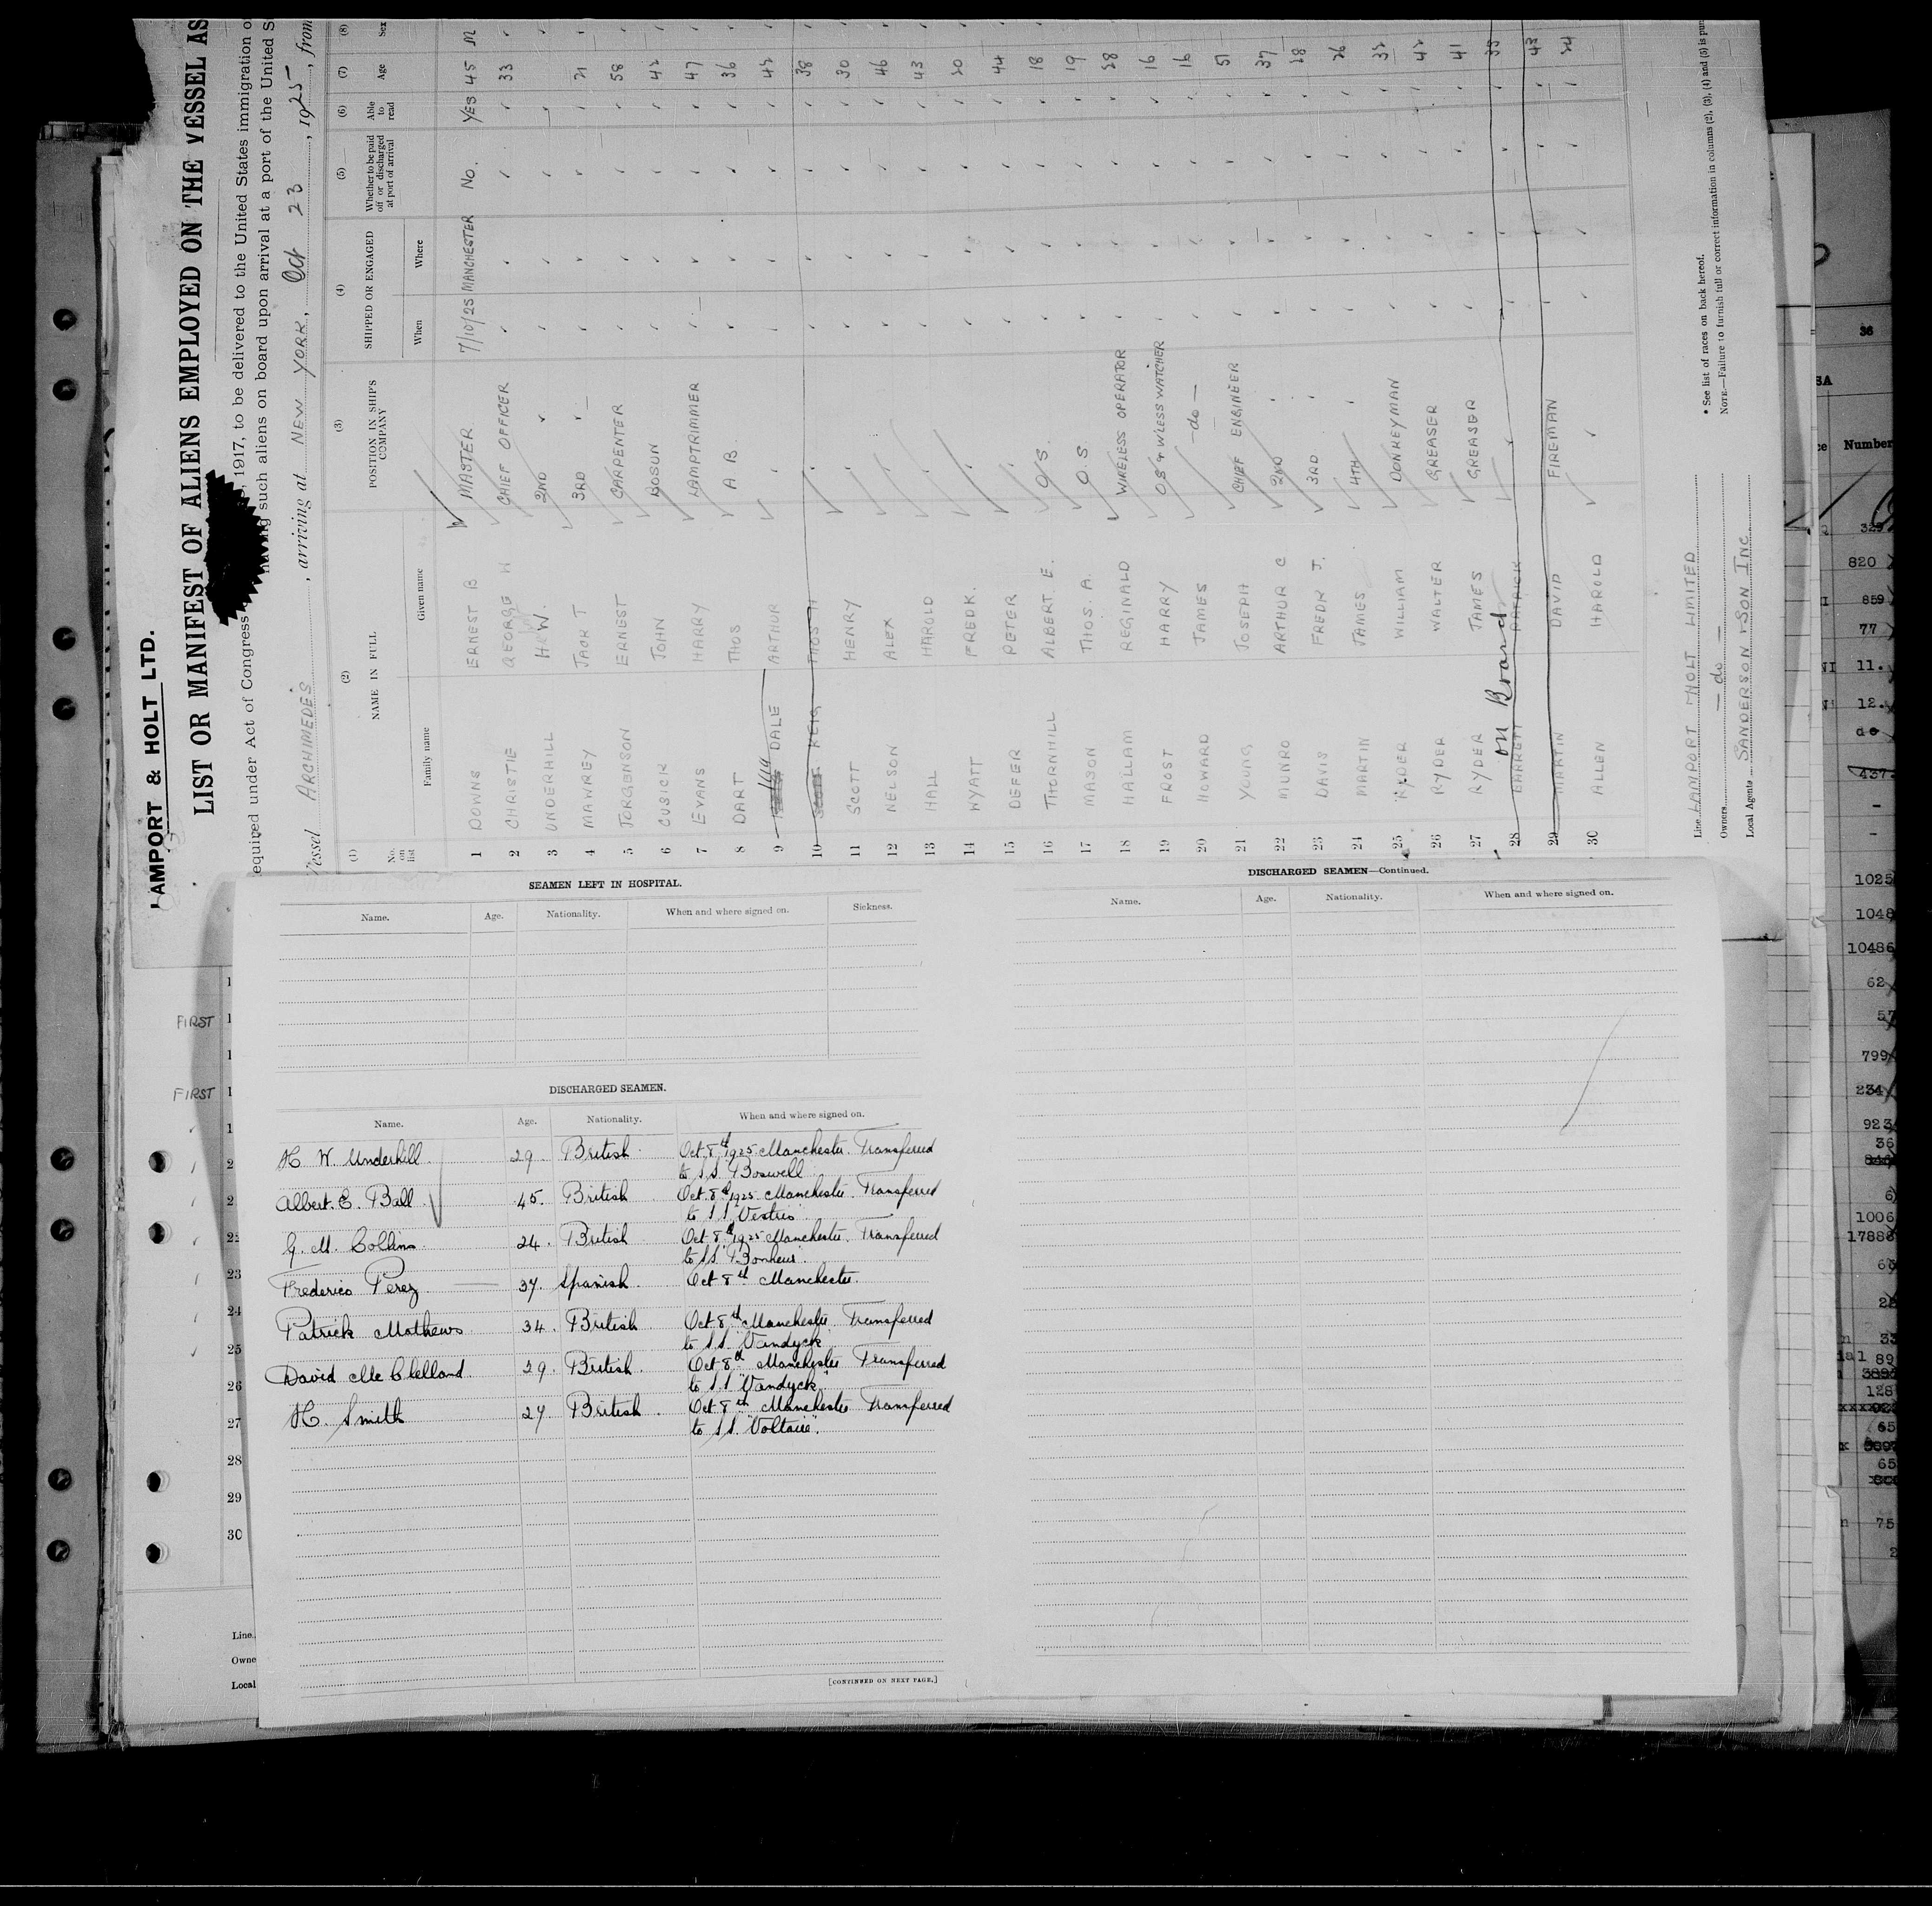 LAMPORT & HOLT LTD.
LIST OR MANIFEST OF ALIENS EMPLOYED ON THE VESSEL AS
equired under Act of Congress 1917, to be delivered to the United States immigration
such aliens on board upon arrival at a port of the United
Vessel ARCHIMEDES, arriving at NEW YORK, Oct 23, 1925, from
(1) (2) (3) (4) (5) (6) (7) (8)
No. on list NAME IN FULL POSITION IN SHIP'S COMPANY SHIPPED OR ENGAGED Whether to be paid off or discharged at port of arrival Able to read Age Sex
Family name Given name When Where
1 DOWNS ERNEST B MASTER 7/10/25 MANCHESTER No. YES 45 M
2 CHRISTIE GEORGE H CHIEF OFFICER 33
3 UNDERHILL H W. 2ND
4 MAWREY T 3RD 21
5 JORGENSON ERNEST CARPENTER 58
6 CUSICK JOHN BOSUN 42
7 EVANS HARRY LAMPTRIMMER 47
8 DART THOS A B 36
9 DALE ARTHUR 42
10 KEIG THOS H 38
11 SCOTT HENRY 30
12 NELSON ALEX 46
13 HALL HAROLD 43
14 WYATT FREDK. 20
15 DEFER PETER 44
16 THORNHILL ALBERT E. O S. 18
17 MASON THOS. A. O. S 19
18 HALLAM REGINALD WIRELESS OPERATOR 28
19 FROST HARRY OS & W'LESS WATCHER 16
20 HOWARD JAMES —do— 16
21 YOUNG JOSEPH CHIEF ENGINEER 51
22 MUNRO ARTHUR C 2ND 37
23 DAVIS FREDK J. 3RD 28
24 MARTIN JAMES 4TH 26
25 RYDER WILLIAM DONKEYMAN 32
26 RYDER WALTER GREASER 42
27 RYDER JAMES GREASER 41
28 BARRETT PATRICK 33
on Board
29 MARTIN DAVID FIREMAN 43
30 ALLEN HAROLD 24
Line LAMPORT & HOLT LIMITED
Owners —do—
Local Agents SANDERSON & SON INC
* See list of races on back hereof.
NOTE.—Failure to furnish full or correct information in columns (2), (3), (4) and (5) is
SEAMEN LEFT IN HOSPITAL.
Name. Age. Nationality. When and where signed on. Sickness.
DISCHARGED SEAMEN.
Name. Age. Nationality. When and where signed on.
H. W. Underhill 29. British Oct. 8th 1925 Manchester. Transferred
to S.S. Boswell
Albert. E. Ball 45. British Oct. 8th 1925 Manchester. Transferred
to S.S. Vestris
G. M. Collins 24. British Oct 8th 1925 Manchester. Transferred
to S.S. "Bonheur".
Frederico Perez 37. Spanish. Oct 8th Manchester.
Patrick Mathews 34. British Oct. 8th Manchester Transferred
to S.S. "Vandyck"
David Mc Clelland. 29. British. Oct 8th Manchester Transferred
to S.S. "Vandyck"
H. Smith 27. British. Oct 8th Manchester Transferred
to S.S. "Voltaire".
[CONTINUED ON NEXT PAGE.]
DISCHARGED SEAMEN—Continued.
Name. Age. Nationality. When and where signed on.
FIRST
FIRST
23
24
25
26
27
28
29
30
Line
Owne
Local
36
Number
329
820
859
77
11.
12.
do
437.
1025
1048
10486
62
57
799
234
923
36
6
1006
17888